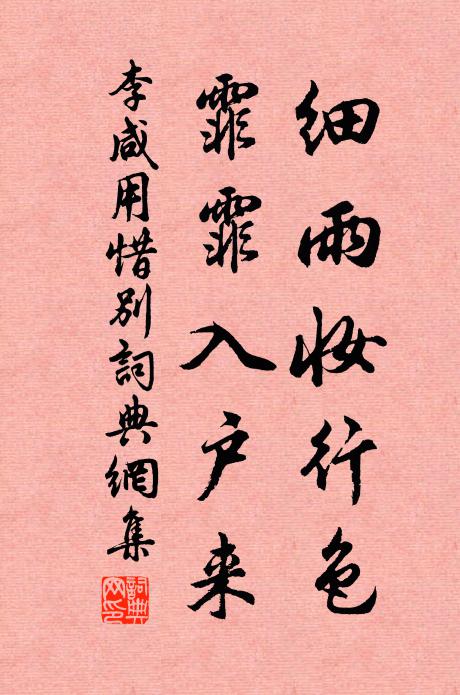 细雨妆行色
霏霏入户来
李咸用惜别詞典網集
詞典网印